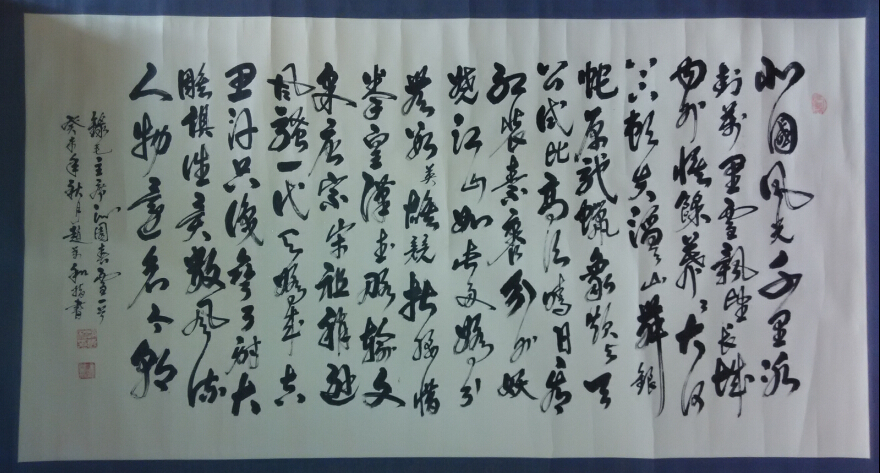 北國風光千里冰
封萬里雪飄望長城
内外惟餘莽莽大河
上下頓失滔滔山舞銀
蛇原馳蠟象欲与天
公試比高須晴日看
紅裝素裹分外妖
嬈江山如此多嬌引
無數英雄競折腰惜
秦皇漢武略輸文
采唐宗宋祖稍遜
風骚一代天驕成吉
思汗只識彎弓射大
雕俱往矣數風流
人物還看今朝
録毛主席沁園春雪一首
癸未年秋月